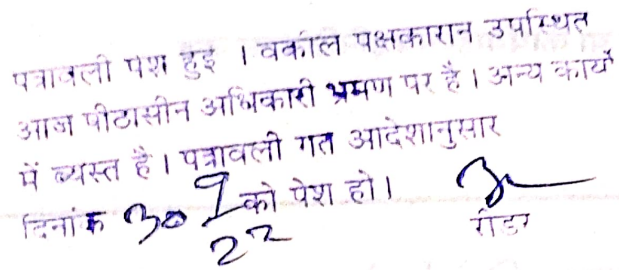 पत्रावली पेश हुई । वकील पक्षकारान उपस्थित
आज पीठासीन अधिकारी भ्रमण पर है । अन्य कार्यों
में व्यस्त है । पत्रावली गत आदेशानुसार
दिनांक 30 9 को पेश हो ।
22
रीडर